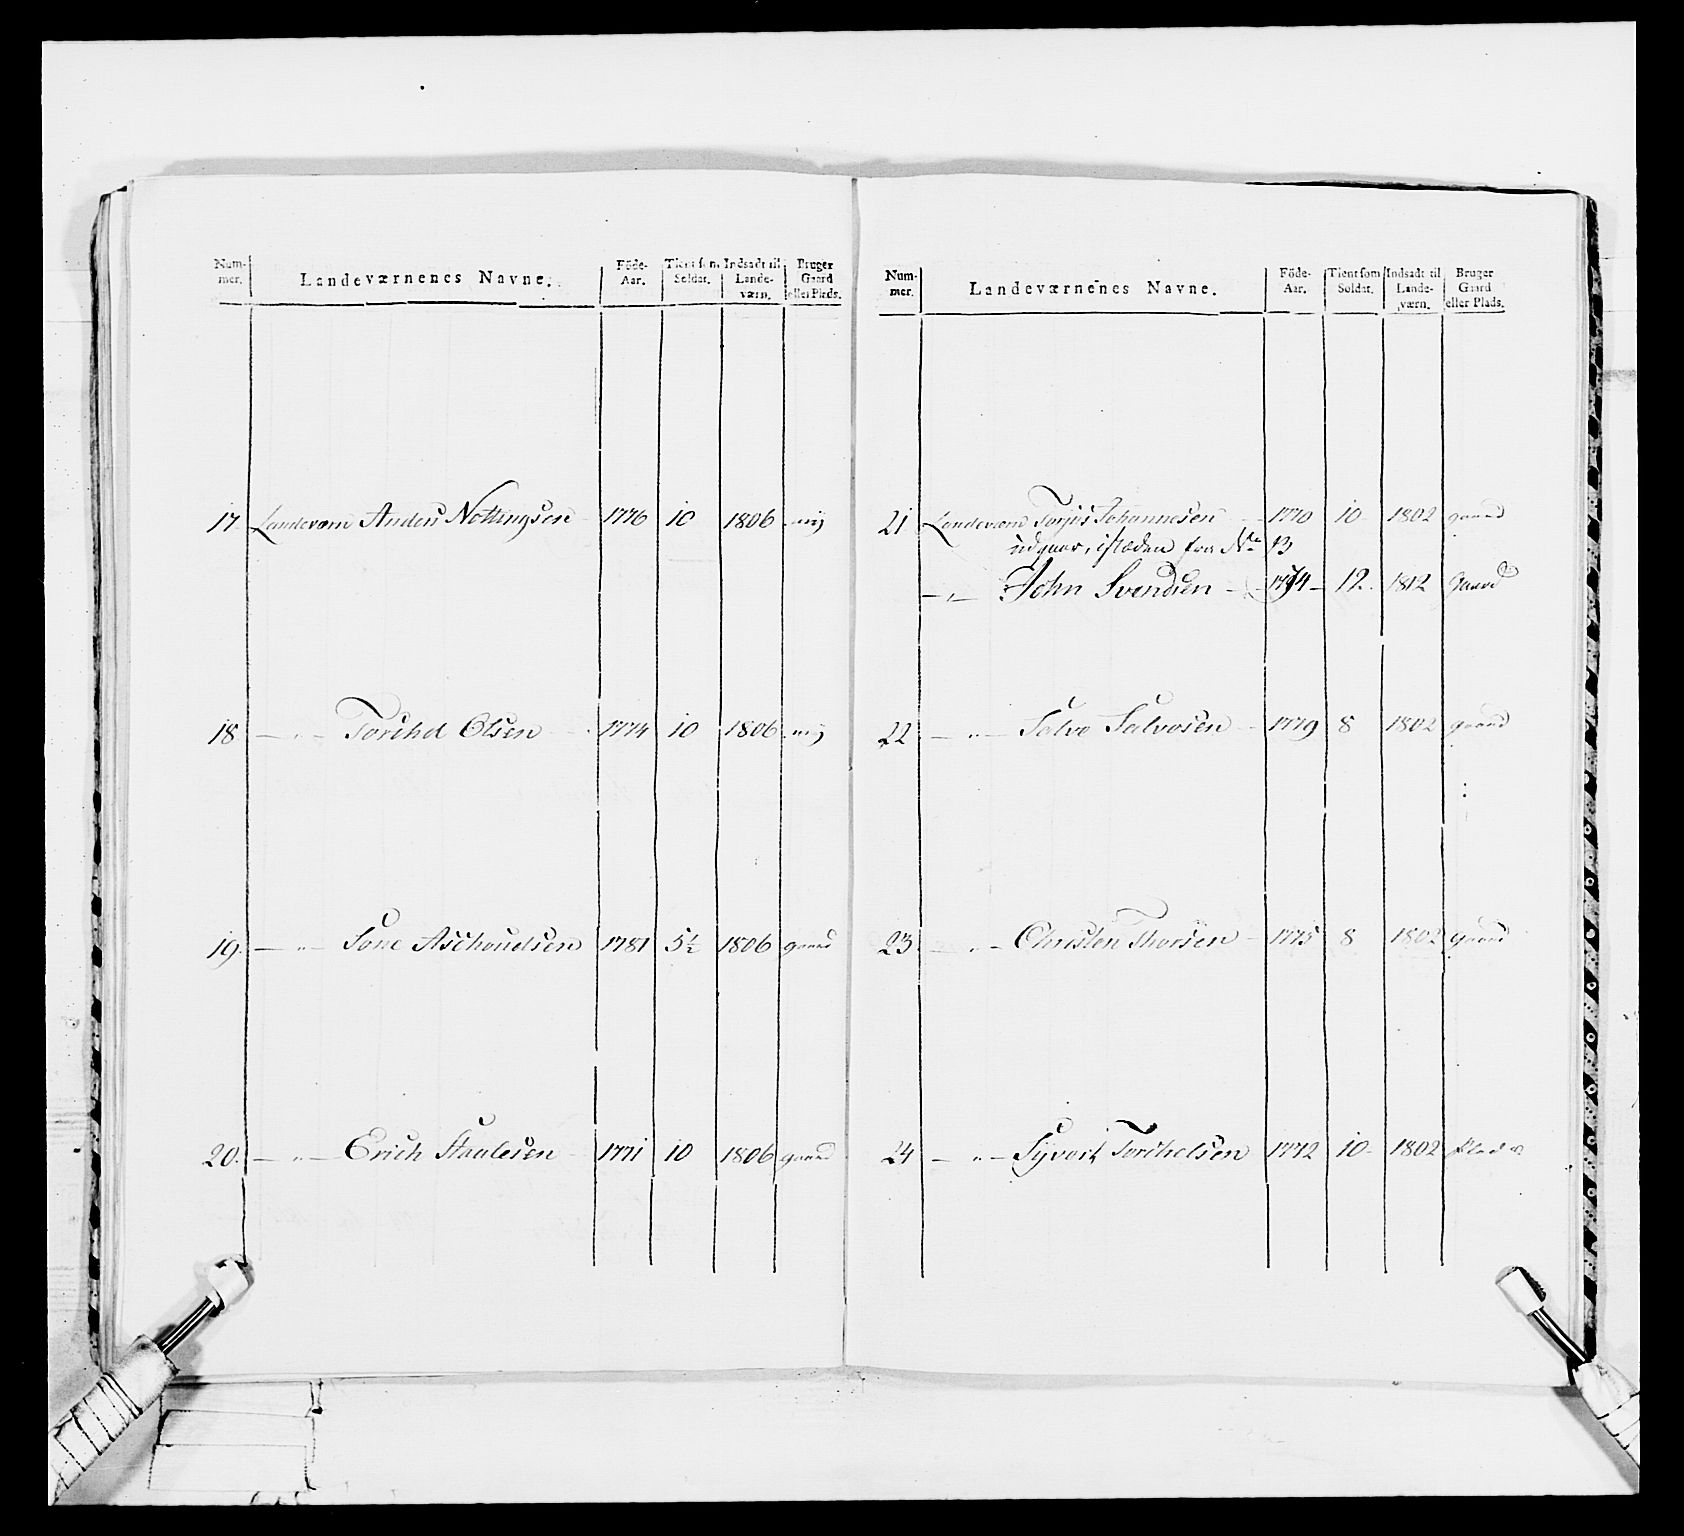 Num-mer. | Landeværnenes Navne. | Föde-Aar. | Tient som Soldat. | Indsadt til Lande-værn. | Bruger Gaard eller Plads.
17 Landeværn Anders Nottingsen 1776 10 1806 nij
18 — " — Torchel Olsen 1774 10 1806 nij
19. — " — Tone Aschouelsen 1781 5½ 1806 gaard
20. — " — Erich Staalesen 1771 10 1806 gaard
Num-mer. | Landeværnenes Navne. | Föde-Aar. | Tient som Soldat. | Indsadt til Lande-værn. | Bruger Gaard eller Plads.
21 Landeværn Torjus Johannesen 1770 10 1802 gaard
udgaar, istæden fra No 13
— " — John Svendsen 1774 12. 1812 Gaard
22 — " — Salve Salvosen 1779 8 1802 gaard
23 — " — Christen Thorsen 1775 8 1802 gaard
24 — " — Syvort Torchelsen 1772 10 1802 Plads